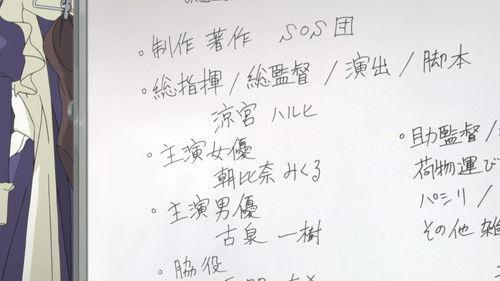 ・制作 著作 SOS団
・総指揮/総監督/演出/脚本
涼宮 ハルヒ
・主演女優
朝比奈 みくる
・主演男優
古泉 一樹
・脇役
・助監督/
荷物運び
パシリ/
その他 雑